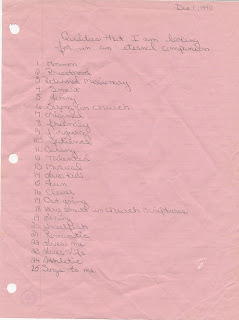 Dec 1, 1990
Qualities that I am looking
for in an eternal companion
1. Mormon
2. Priesthood
3. Returned Missionary
4.
5. funny
6. Strong in church
7.
8. friendly
9. Forgiving
10.
11. Caring
12. Talented
13. Musical
14. likes kids
15. fun
16. Clever
17. Out going
18. Very smart in church scriptures
19. loving
20. Unselfish
21. Romantic
22. loves me
23. loves life
24. Athletic
25. Sings to me